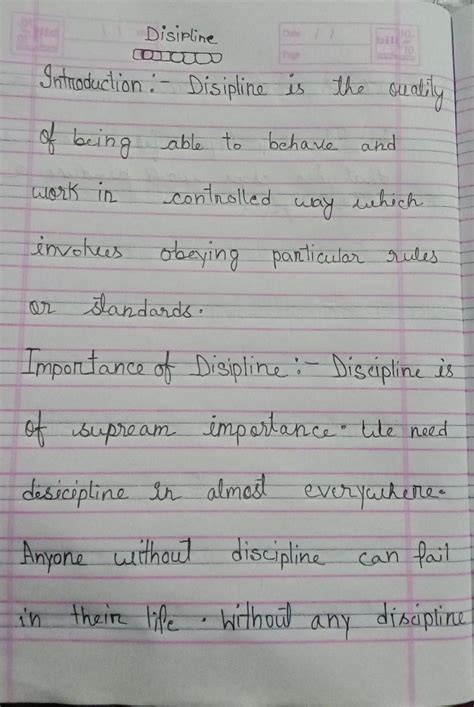 Disipline
Date / /
Page
Introduction :- Disipline is the quality
of being able to behave and
work in controlled way which
involves obeying particular rules
or standards.
Importance of Disipline :- Discipline is
of supream importance. We need
desicipline in almost everywhere.
Anyone without discipline can fail
in their life. Without any discipline